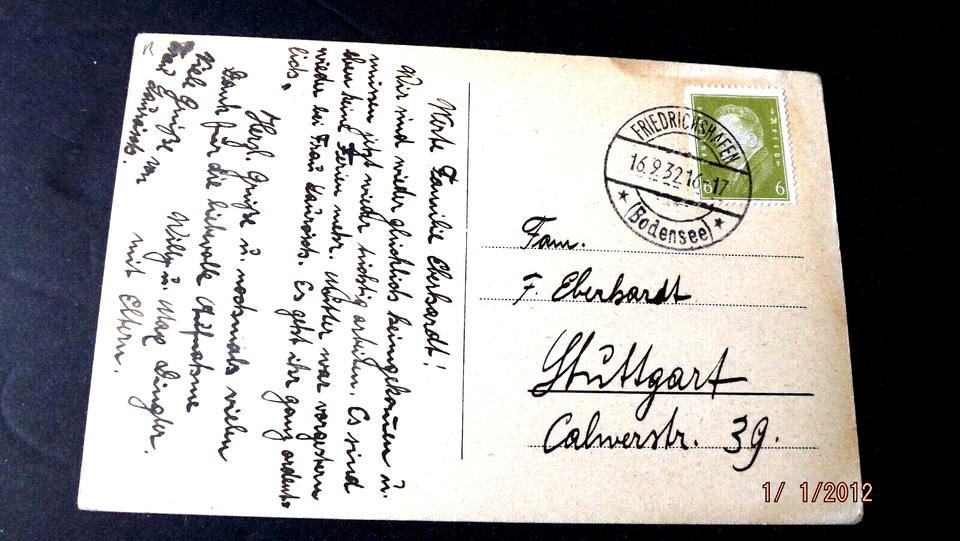 Werte Familie Eberhardt!
Wir sind wieder glücklich heimgekommen u.
müssen jetzt wieder tüchtig arbeiten. Es sind
eben keine Ferien mehr. Mutter war vorgestern
wieder bei Frau Es geht ihr ganz ordent-
lich.
Herzl. Grüße u. nochmals vielen
Dank für die liebevolle Aufnahme
Viele Grüße von Willy u. Max Dingler.
Frau mit Eltern.
FRIEDRICHSHAFEN
16.9.32 16-17
(Bodensee)
6 6
Fam.
F. Eberhardt
Stuttgart
Calwerstr. 39.
1/ 1/2012